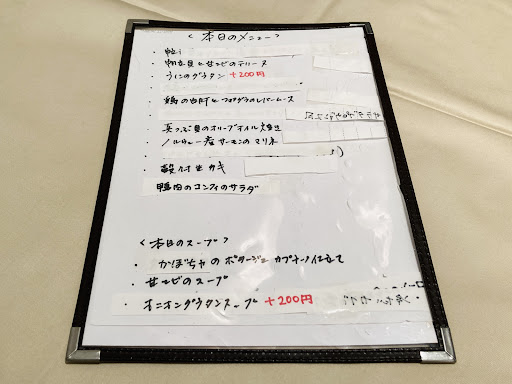 < 本日のメニュー >
・帆立貝と甘エビのテリーヌ
・うにのグラタン +200円
・鶏の白肝とフォアグラのレバームース
・真つぶ貝のオリーブオイル
・ノルウェー産サーモンのマリネ
・殻付生カキ
鴨肉のコンフィのサラダ
< 本日のスープ >
・かぼちゃのポタージュ カプチーノ仕立て
・甘エビのスープ
・オニオングラタンスープ +200円